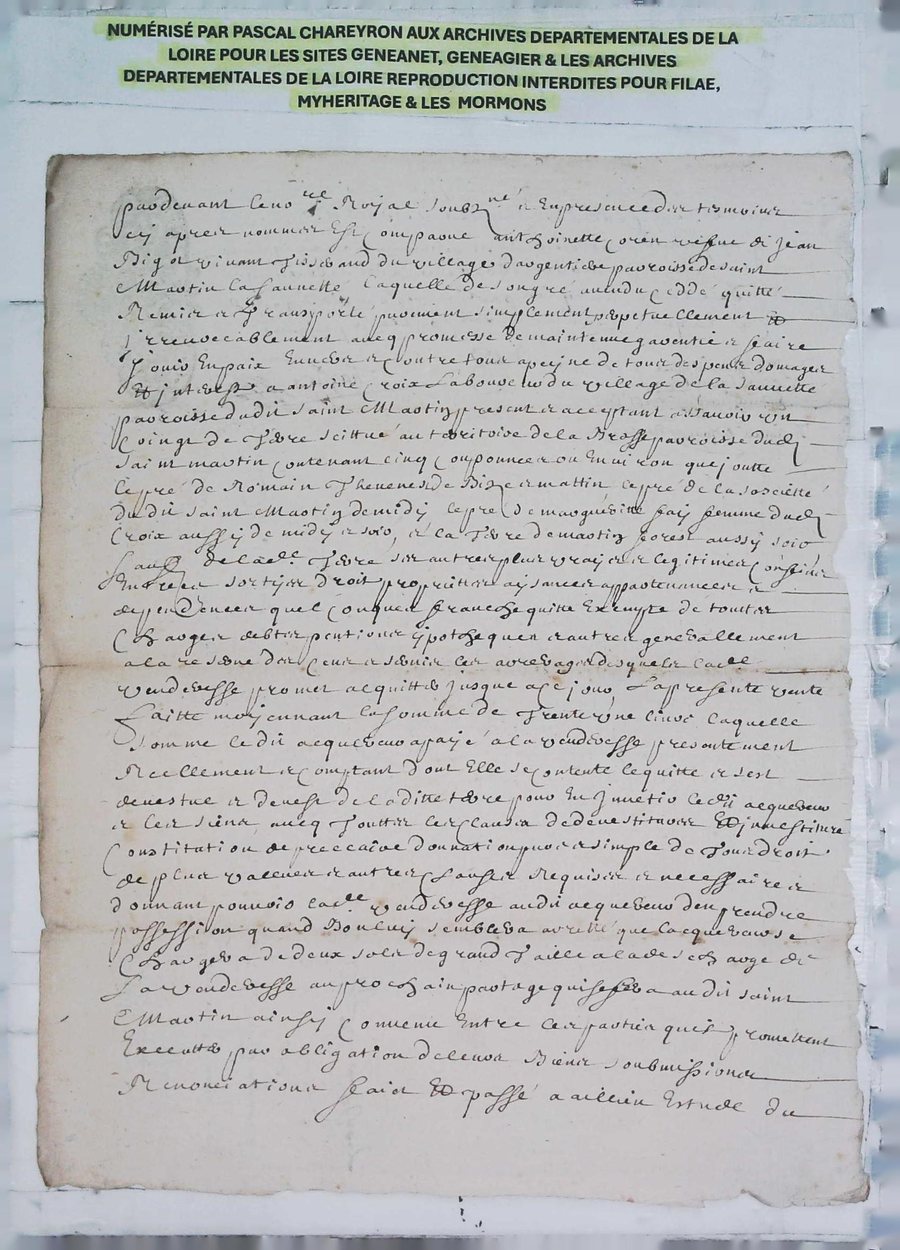 NUMÉRISÉ PAR PASCAL CHAREYRON AUX ARCHIVES DEPARTEMENTALES DE LA
LOIRE POUR LES SITES GENEANET, GENEAGIER & LES ARCHIVES
DEPARTEMENTALES DE LA LOIRE REPRODUCTION INTERDITES POUR FILAE,
MYHERITAGE & LES MORMONS
pardevant le no.re Royal soubz.né et en presence des tesmoins
cy apres nommes est Comparue anthoinette Coren vefve de Jean
Bigot vivant Tisserand du village d'argentiere parroisse de saint
Martin la Sauuette laquelle de son gré a vendu ceddé quitté
Remis et Transporté purement simplement perpetuellement et
irrevocablement avecq promesse de maintenue garentie et faire
jouir En paix Envers et Contre tous a peyne de tous despens domages
Et interests a antoine Croix Laboureur du village de la Sauuette
parroisse dudit saint Martin present et acceptant assavoir un
Coingt de Terre scittué au territoire de la Brosse parroisse dud.
saint martin Contenant Cinq Couponnees ou Environ que joutte
le pré de Romain Thevenes de Bize et mattin le pré de la sosciette
du dit saint Martin de midy le pré de marguerite fay femme dud.
Croix aussy de midy et soir, et la Terre de martin fores aussy soir
sauf de lad.te Terre ses autres plus vrays et legitimes Confins
Entrees sortyes droit proprietes aysances appartenances et
deppendences quelconques franche quitte Exempte de touttes
Charges debtes pentions ypotheques et autres generallement
a la reserve des Cens et servis les arrerages desquels lad.te
venderesse promet acquitter jusque a ce jour, La presente vente
faitte moyennant la somme de Trente une livre laquelle
somme le dit acquereur a payé a la venderesse presentement
Reellement et Comptant dont Elle se contente le quitte et s'est
devestue et devest de la ditte terre pour En investir le dit acquereur
et les siens, avecq Touttes les Clauses de devestitures Et investiture
Constitution de preccaire donnation pure et simple de Tous droit
de plus vallues et autres Clauses Requises et necessaires
donnant pouvoir lad.te venderesse au dit acquereur d'en prendre
possession quand Bon luy semblera arresté que lacquereur se
Chargera de deux sols de grand Taille a la descharge de
La venderesse au prochain partage qui se fera au dit saint
Martin ainsy Convenu Entre les parties qu'ils promettent
Executer par obligation de leurs Biens soubmissions
Renonciations fait Et passé a aillieu Estude du